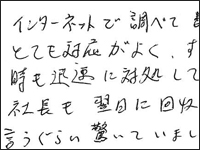 インターネットで調べて
とても対応がよく、す
時も迅速に対処して
社長も翌日に回収
言うぐらい驚いていまし